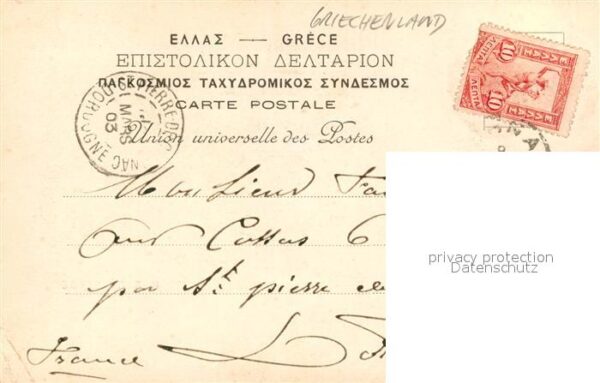 GRIECHENLAND
ΕΛΛΑΣ — GRÈCE
ΕΠΙΣΤΟΛΙΚΟΝ ΔΕΛΤΑΡΙΟΝ
ΠΑΓΚΟΣΜΙΟΣ ΤΑΧΥΔΡΟΜΙΚΟΣ ΣΥΝΔΕΣΜΟΣ
CARTE POSTALE
Union universelle des Postes
ΕΛΛΑΣ
10 ΛΕΠΤΑ ΛΕΠΤΑ 10
DORDOGNE
MARS
03
Monsieur
aux Cottes 6
par St pierre de
France
privacy protection
Datenschutz